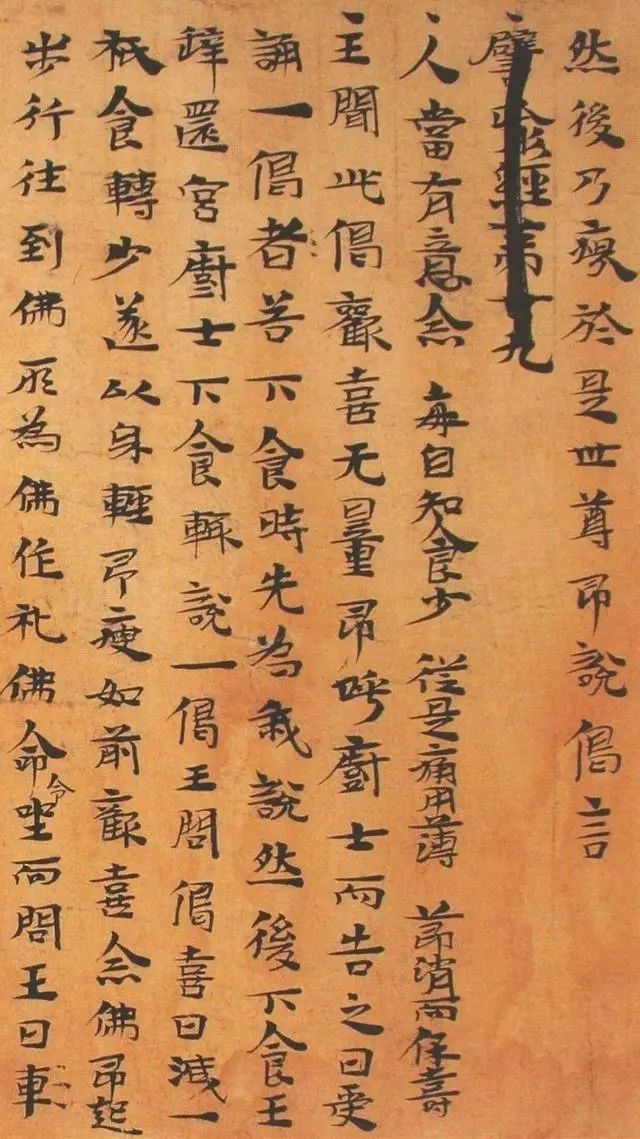 然後乃瘦於是世尊即說偈言
譬喻經第廿九
人當有意念 每自知食少 從是痛用薄 節消而保壽
王聞此偈歡喜无量即呼廚士而告之曰受
誦一偈者若下食時先為我說然後下食王
辭還宮廚士下食輒說一偈王問偈喜日減一
柢食轉少遂以身輕即瘦如前歡喜念佛即起
步行往到佛所為佛作礼佛命令坐而問王曰車